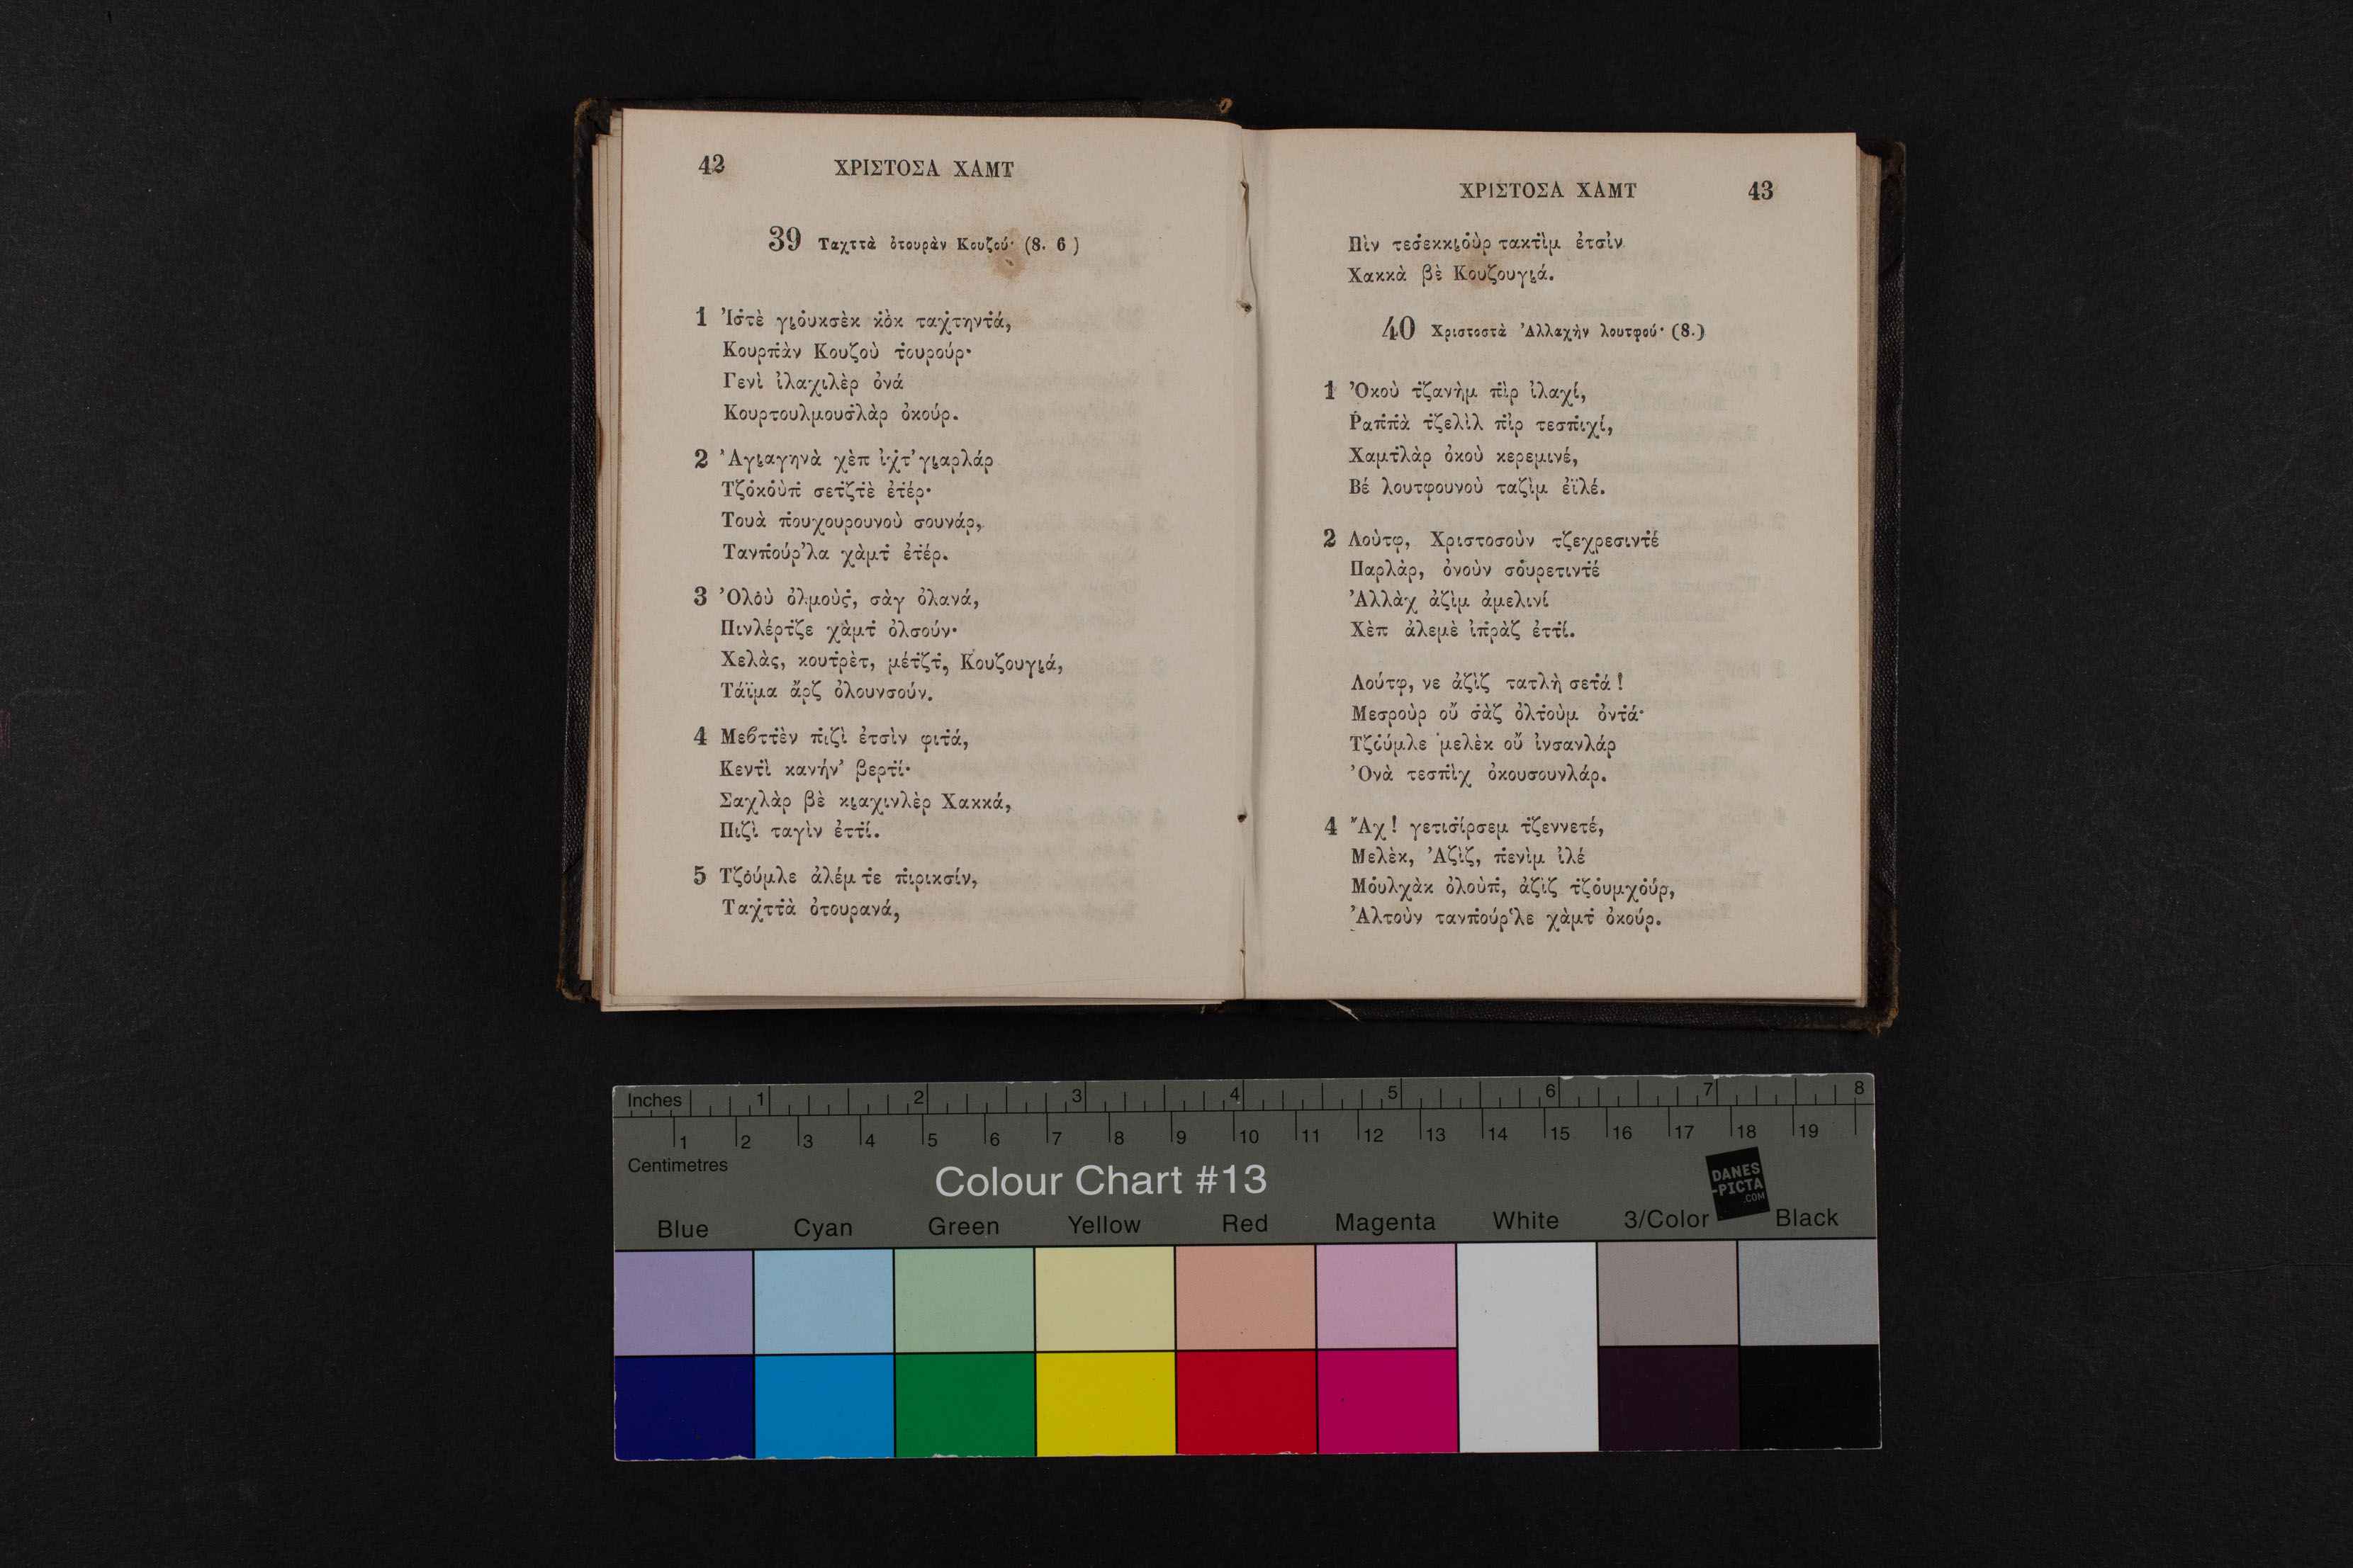 42 ΧΡΙΣΤΟΣΑ ΧΑΜΤ
39 Ταχττὰ ὀτουρὰν Κουζού· (8. 6)
1 Ἰσ̇τὲ γι̮ο̇υκσὲκ κ̇ὸκ ταχ̇τηντ̇ά,
Κουρπ̇ὰν Κουζοὺ τ̇ουρούρ·
Γενὶ ἰλαχιλὲρ ὀνά
Κουρτουλμουσ̇λὰρ ὀκούρ.
2 Ἀγι̮αγηνὰ χὲπ ἰχ̇τ᾽γι̮αρλάρ
Τζο̇κο̇ὺπ̇ σετ̇ζτ̇ὲ ἐτ̇έρ·
Τουὰ π̇ουχουρουνοὺ σουνάρ,
Τανπ̇ούρ᾽λα χὰμτ̇ ἐτ̇έρ.
3 Ὀλο̇ὺ ὀλμοὺς̇, σὰγ ὀλανά,
Πινλέρτ̇ζε χὰμτ̇ ὀλσούν·
Χελὰς, κουτ̇ρὲτ, μέτ̇ζτ̇, Κουζουγι̮ά,
Τάϊμα ἄρζ ὀλουνσούν.
4 Μεϐττ̇ὲν π̇ιζὶ ἐτσὶν φιτ̇ά,
Κεντ̇ὶ κανήν᾽ βερτ̇ί·
Σαχλὰρ βὲ κι̮αχινλὲρ Χακκά,
Πιζὶ ταγὶν ἐττ̇ί.
5 Τζο̇ύμλε ἀλέμ τ̇ε π̇ιρικσίν,
Ταχ̇ττ̇ὰ ὀτουρανά,
ΧΡΙΣΤΟΣΑ ΧΑΜΤ 43
Πὶν τεσ̇εκκι̮ο̇ὺρ τακτ̇ὶμ ἐτσὶν
Χακκὰ βὲ Κουζουγι̮ά.
40 Χριστοστὰ Ἀλλαχὴν λουτφού· (8.)
1 Ὀκοὺ τ̇ζανὴμ π̇ὶρ ἰλαχί,
Ῥαπ̇π̇ὰ τ̇ζελὶλ π̇ὶρ τεσπ̇ιχί,
Χαμτ̇λὰρ ὀκοὺ κερεμινέ,
Βέ λουτφουνοὺ ταζὶμ ἐϊλέ.
2 Λοὺτφ, Χριστοσοὺν τζεχρεσιντ̇έ
Παρλὰρ, ὀνοὺν σο̇υρετιντ̇έ
Ἀλλὰχ ἀζὶμ ἀμελινί
Χὲπ ἀλεμὲ ἰπ̇ρὰζ ἐττ̇ί.
Λούτφ, νε ἀζὶζ τατλὴ σετ̇ά!
Μεσροὺρ οὔ σ̇ὰζ ὀλτ̇οὺμ ὀντ̇ά·
Τζο̇ύμλε μελὲκ οὔ ἰνσανλάρ
Ὀνὰ τεσπ̇ὶχ ὀκουσουνλάρ.
4 Ἄχ! γετισ̇ίρσεμ τ̇ζεννετέ,
Μελὲκ, Ἀζὶζ, π̇ενὶμ ἰλέ
Μο̇υλχὰκ ὀλοὺπ̇, ἀζὶζ τ̇ζο̇υμχο̇ύρ,
Ἀλτοὺν τανπ̇ούρ᾽λε χὰμτ̇ ὀκούρ.
Inches 1 2 3 4 5 6 7 8
1 2 3 4 5 6 7 8 9 10 11 12 13 14 15 16 17 18 19
Centimetres
Colour Chart #13
DANES
-PICTA
.COM
Blue Cyan Green Yellow Red Magenta White 3/Color Black